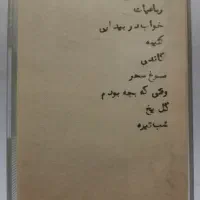 رباعیات
خواب در بیداری
کتیبه
گاندی
سرخ سحر
وقتی که بچه بودم
گل یخ
شب تیره